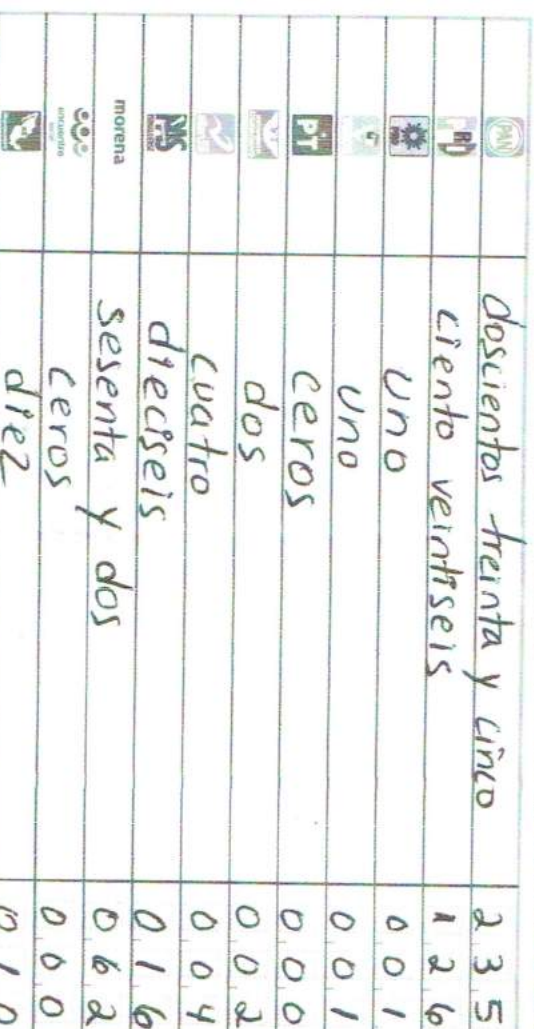 PAN doscientos treinta y cinco 2 3 5
ciento veintiseis 1 2 6
PRD uno 0 0 1
uno 0 0 1
PT ceros 0 0 0
dos 0 0 2
cuatro 0 0 4
dieciseis 0 1 6
morena sesenta y dos 0 6 2
encuentro social ceros 0 0 0
diez 0 1 0